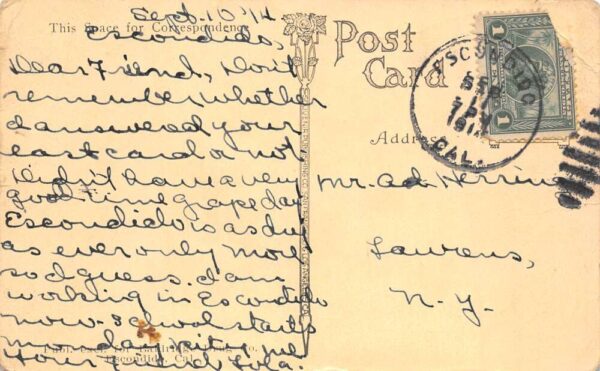 This Space for Correspondence
Post
Card
Address
Sept. 10 '14
Escondido,
Dear Friend, Don't
remember whether
I answered your
last card or not
Didn't have a very
good time grape day
Escondido is as dry
as ever only more
so I guess. I am
working in Escondido
now. School starts
Monday. Write me
Your friend Lola.
Mr. Ad. Herring
Lawrens,
N. Y.
ESCONDIDO
SEP
CAL.
1
1
Escondido, Cal.